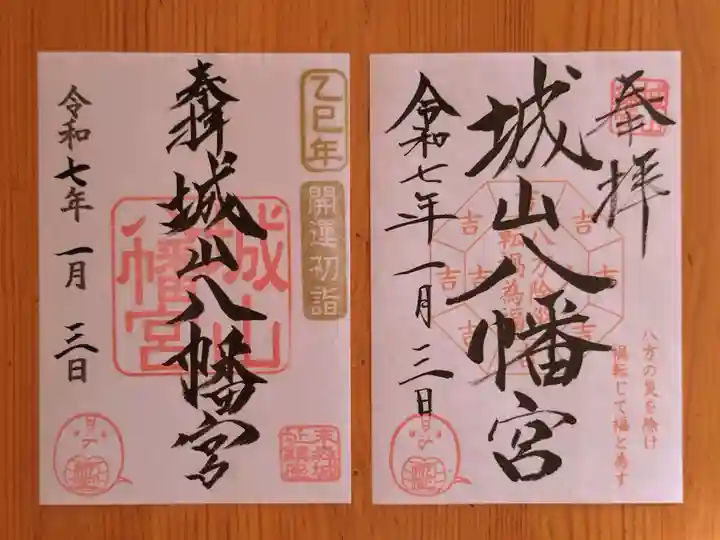 乙巳年
開運初詣
奉拝
城山八幡宮
城山
八幡宮
令和七年 一月 三日
奉拝
城山八幡宮
八方除災
転禍為福
吉
吉
吉
吉
吉
吉
吉
八方の災を除け
禍転じて福と為す
令和七年一月三日